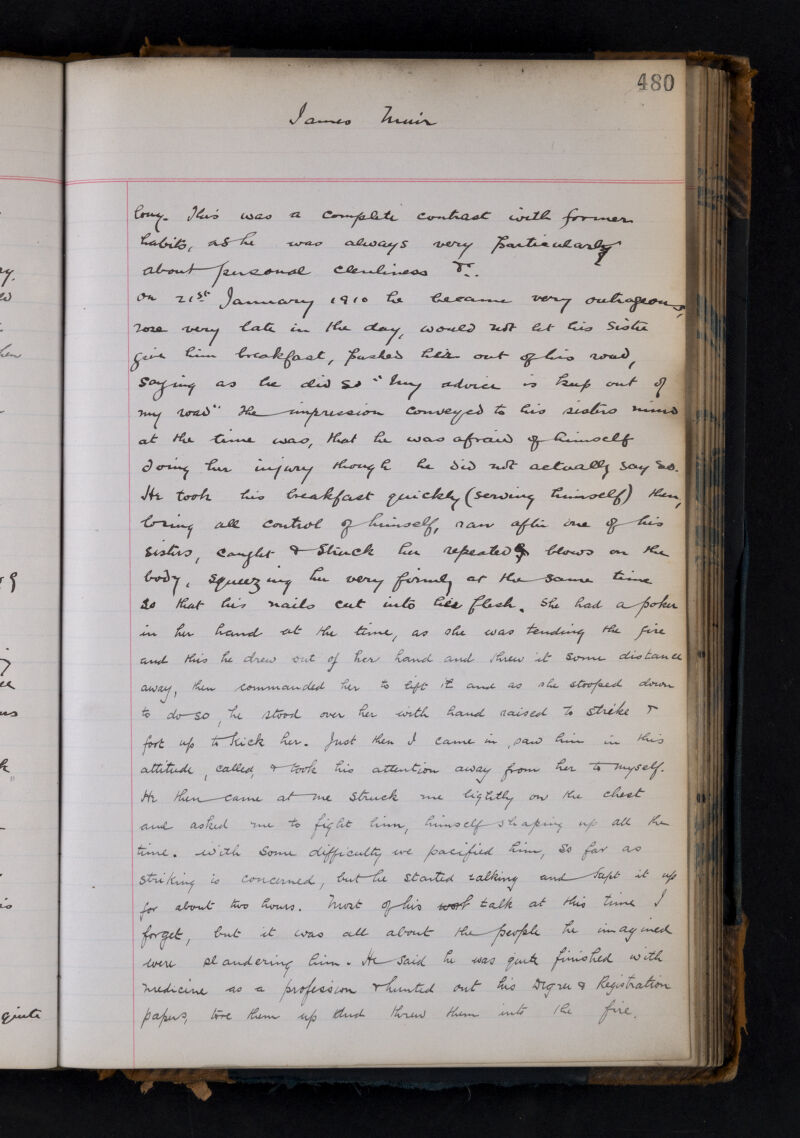 480
James Muir
long. This was a complete contrast with former
habits, as he was always very particularly
about personal clenliness &c..
on 21st January 1910 he became very outrageous,
rose very late in the day, would not let his sister
give him breakfast, pushed her out of his road,
saying as he did so "my advice is keep out of
my road" the impression conveyed to his sisters mind
at the time was, that he was afraid of himself
doing her injury though he did not actually say so.
He took his breakfast quickly (serving himself) then,
losing all control of himself, ran after one of his
sisters, caught & struck her repeated blows on the
body, squeezing her very firmly at the same time
so that his nails cut into her flesh. She had a poker
in her hand at the time, as she was tending the fire
and this he drew out of her hand and threw it some distance
away, then commanded her to lift it and as she stooped down
to do so, he stood over her with hand raised to strike &
foot up to kick her. Just then I came in, saw him in this
attitude, called, & took his attention away from her to myself.
He then came at me struck me lightly on the chest
and asked me to fight him, himself shaping up all the
time. With some difficulty we pacified him, so far as
striking is concerned, but he started talking and kept it up
for about two hours. Most of his talk at this time I
forget, but it was all about the people he imagined
were slandering him. He said he was quite finished with
medicine as a profession & hunted out his Degree & Registration
papers, tore them up and threw them into the fire.
hen
quite